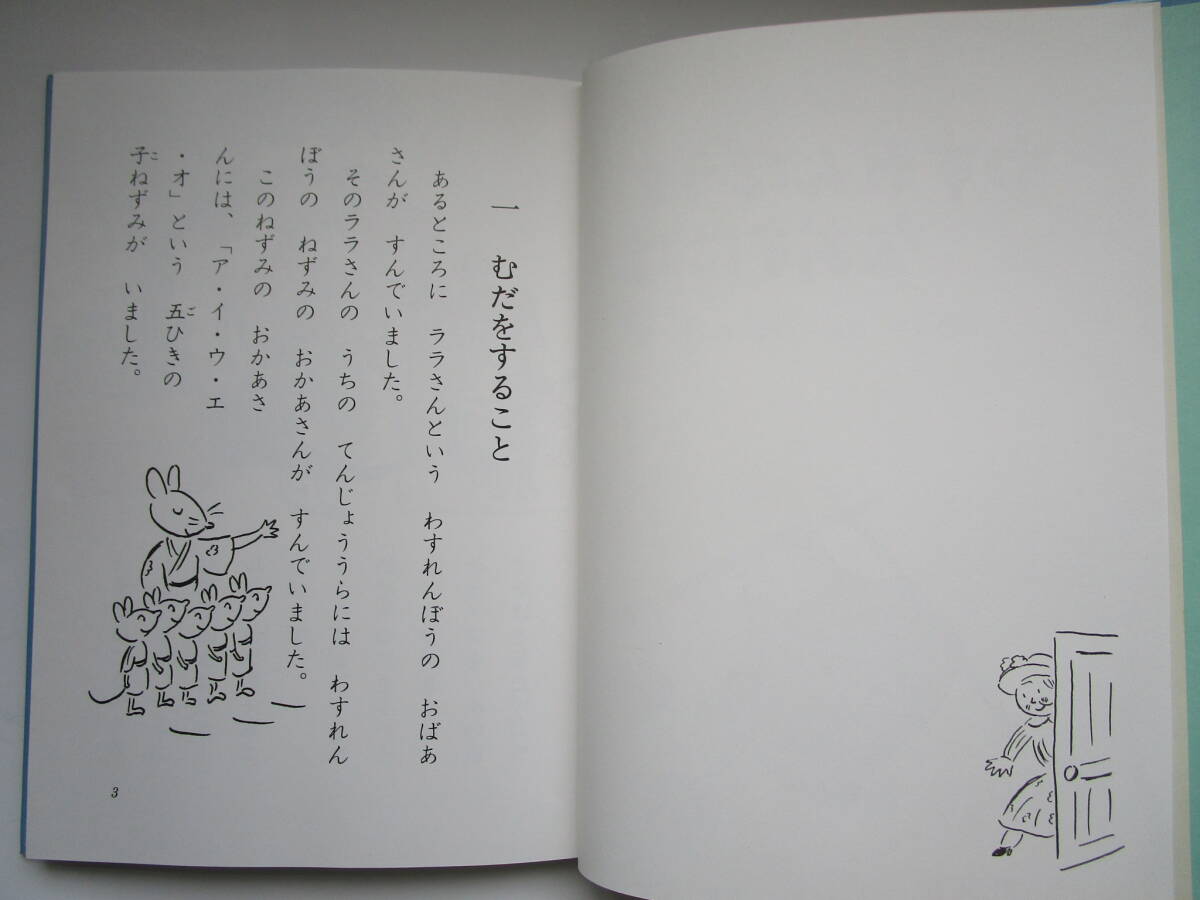 一　むだをすること
あるところに　ララさんという　わすれんぼうの　おばあ
さんが　すんでいました。
そのララさんの　うちの　てんじょううらには　わすれん
ぼうの　ねずみの　おかあさんが　すんでいました。
このねずみの　おかあさ
んには、「ア・イ・ウ・エ
・オ」という　五ひきの
子ねずみが　いました。
ご
こ
3